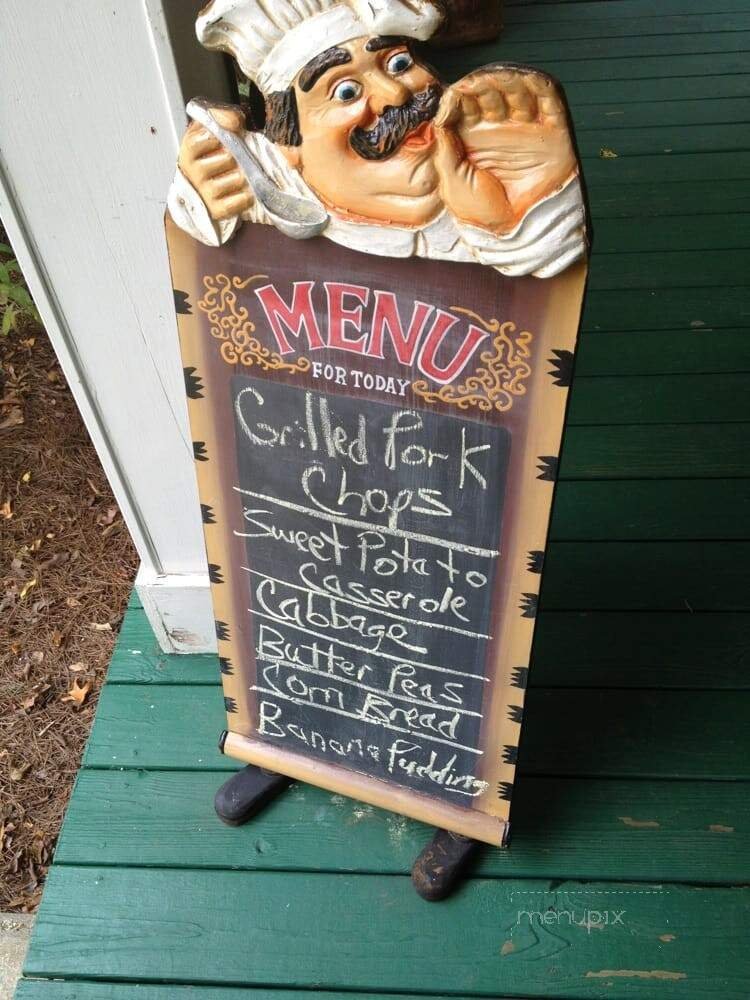 MENU
FOR TODAY
Grilled Pork
Chops
Sweet Potato
Casserole
Cabbage
Butter Peas
Corn Bread
Banana Pudding
menupix